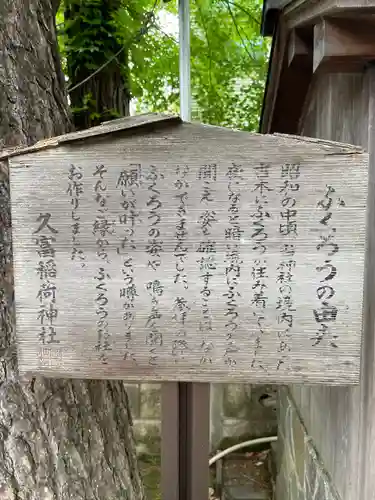 ふくろうの由来
昭和の中頃、お神社の境内にあった
古木にふくろうが住み着いていました。
夜になると暗い境内にふくろうの声が
聞こえ、姿を確認することは、なか
なかできませんでした。参拝の際に
ふくろうの姿や、鳴き声を聞くと
「願いが叶った」という噂がありました。
そんなご縁から、ふくろうの社務を
お作りしました。
久富稲荷神社